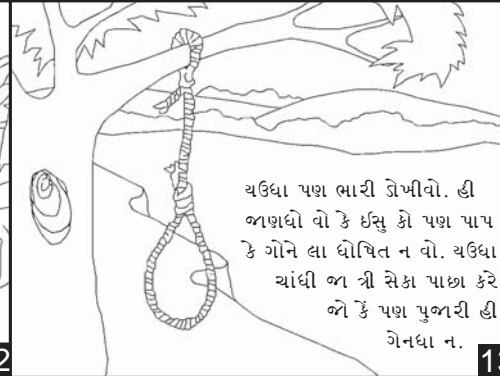 યઉધા પણ ભારી ડોખીવો. હી
જાણધો વો કે ઈસુ કો પણ પાપ
કે ગોને લા ધોષિત ન વો. યઉધા
ચાંધી જા ત્રી સેકા પાછા કરે
જો કેં પણ પુજારી હી
ગેનધા ન.
2